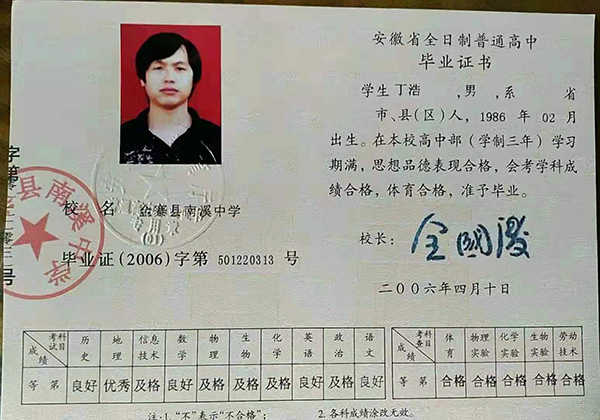 安徽省全日制普通高中
毕业证书
学生丁浩 ,男,系 省
市、县(区)人, 1986 年 02 月
出生。在本校高中部（学制三年）学习
期满，思想品德表现合格，会考学科成
绩合格，体育合格，准予毕业。
校 名 金寨县南溪中学
校长：
毕业证(2006)字第 501220313 号
二〇〇六年四月十日
县南溪中学
考试科目 成绩 历史 地理 信息技术 数学 物理 生物 化学 英语 政治 语文
等第 良好 优秀 及格 及格 及格 及格 及格 良好 良好 良好
考查科目 成绩 体育 物理实验 化学实验 生物实验 劳动技术
等第 合格 合格 合格 合格 合格
注:1.“不”表示“不合格”; 2.各科成绩涂改无效。